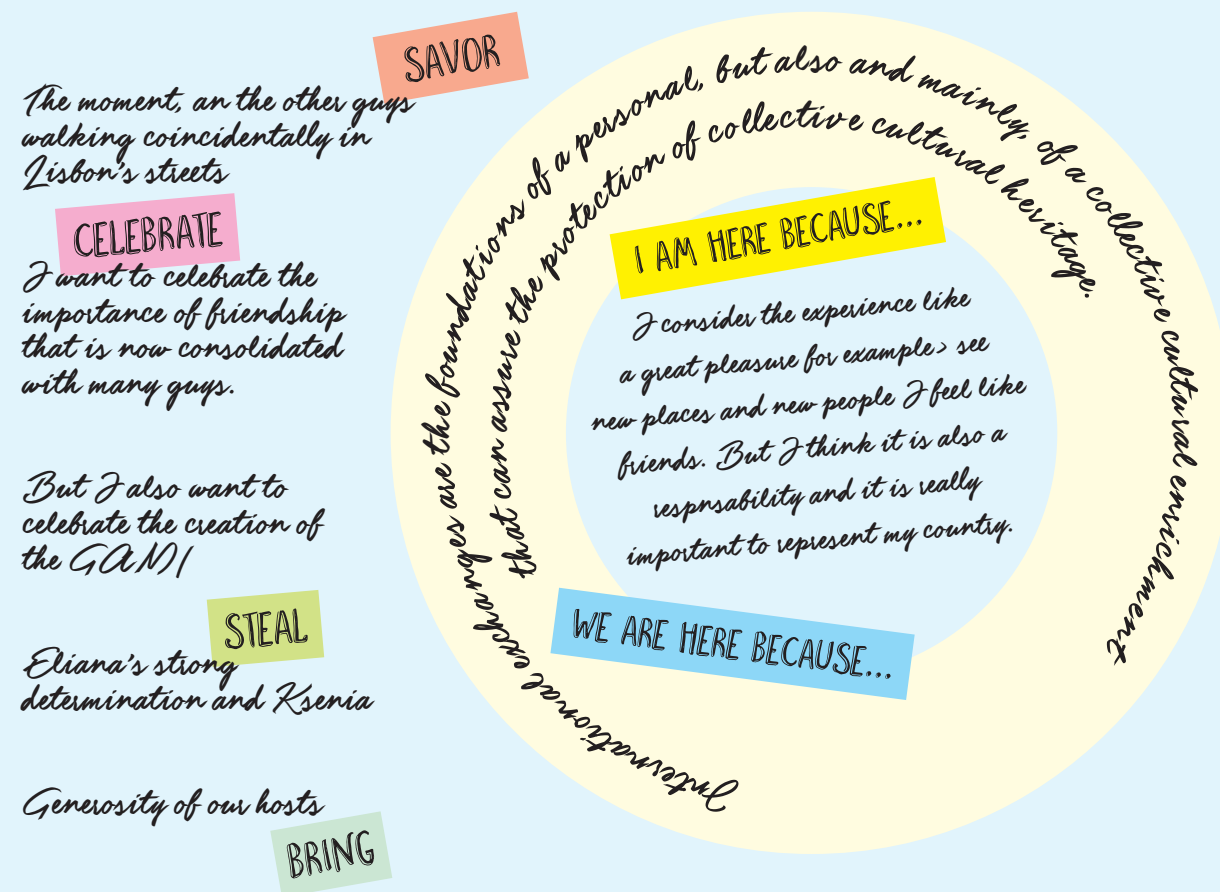 SAVOR
The moment, an the other guys
walking coincidentally in
Lisbon's streets
CELEBRATE
I want to celebrate the
importance of friendship
that is now consolidated
with many guys.
But I also want to
celebrate the creation of
the GANDI
STEAL
Eliana's strong
determination and Ksenia
Generosity of our hosts
BRING
I AM HERE BECAUSE...
I consider the experience like
a great pleasure for example> see
new places and new people I feel like
friends. But I think it is also a
respnsability and it is really
important to represent my country.
WE ARE HERE BECAUSE...
International exchanges are the foundations of a personal, but also and mainly, of a collective cultural enrichment
that can assure the protection of collective cultural heritage.